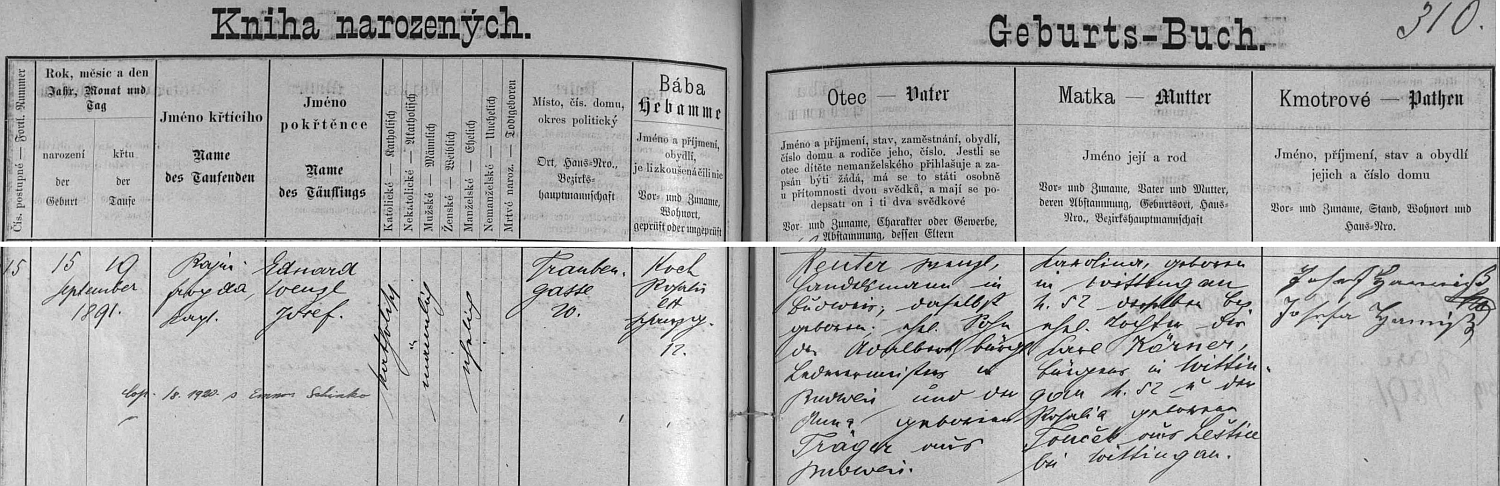 Kniha narozených.
Geburts-Buch.
310.
Čís. postupné — Fortl. Nummer
Rok, měsíc a den
Jahr, Monat und
Tag
narození
der
Geburt
křtu
der
Taufe
Jméno křtícího
Name
des Taufenden
Jméno
pokřtěnce
Name
des Täuflings
Katolické — Katholisch
Nekatolické — Akatholisch
Mužské — Männlich
Ženské — Weiblich
Manželské — Ehelich
Nemanželské — Unehelich
Mrtvě naroz. — Todtgeboren
Místo, čís. domu,
okres politický
Ort, Haus-Nro.,
Bezirks-
hauptmannschaft
Bába
Hebamme
Jméno a příjmení,
obydlí,
je li zkoušená čili nic
Vor- und Zuname,
Wohnort,
geprüft oder ungeprüft
Otec — Vater
Jméno a příjmení, stav, zaměstnání, obydlí,
číslo domu a rodiče jeho, číslo. Jestli se
otec dítěte nemanželského přihlašuje a za-
psán býti žádá, má se to státi osobně
u přítomnosti dvou svědků, a mají se po-
depsati on i ti dva svědkové
Vor- und Zuname, Charakter oder Gewerbe,
Abstammung, dessen Eltern
Matka — Mutter
Jméno její a rod
Vor- und Zuname, Vater und Mutter,
deren Abstammung, Geburtsort, Haus-
Nro., Bezirkshauptmannschaft
Kmotrové — Pathen
Jméno, příjmení, stav a obydlí
jejich a číslo domu
Vor- und Zuname, Stand, Wohnort und
Haus-Nro.
15
15 19
September
1891.
Kapl.
Eduard
Wenzl
Josef.
katholisch
"
männlich
ehelich
Trauben-
gasse
20.
Koch
Rosalia
12.
Reuter Wenzl,
Handelsmann in
Budweis, daselbst
geboren, ehel. Sohn
des Adalbert bürgl.
Ledermeisters in
Budweis und der
Anna geborenen
Träger aus
Budweis.
Karolina, geboren
in Wittingau
N. 52
ehel. Tochter des
Karl Körner,
Bürgers in Wittin-
gau N. 52 u der
Rosalia geborenen
Touček aus Leštice
bei Wittingau.
Josef
Josefa
Cop. 1920 s